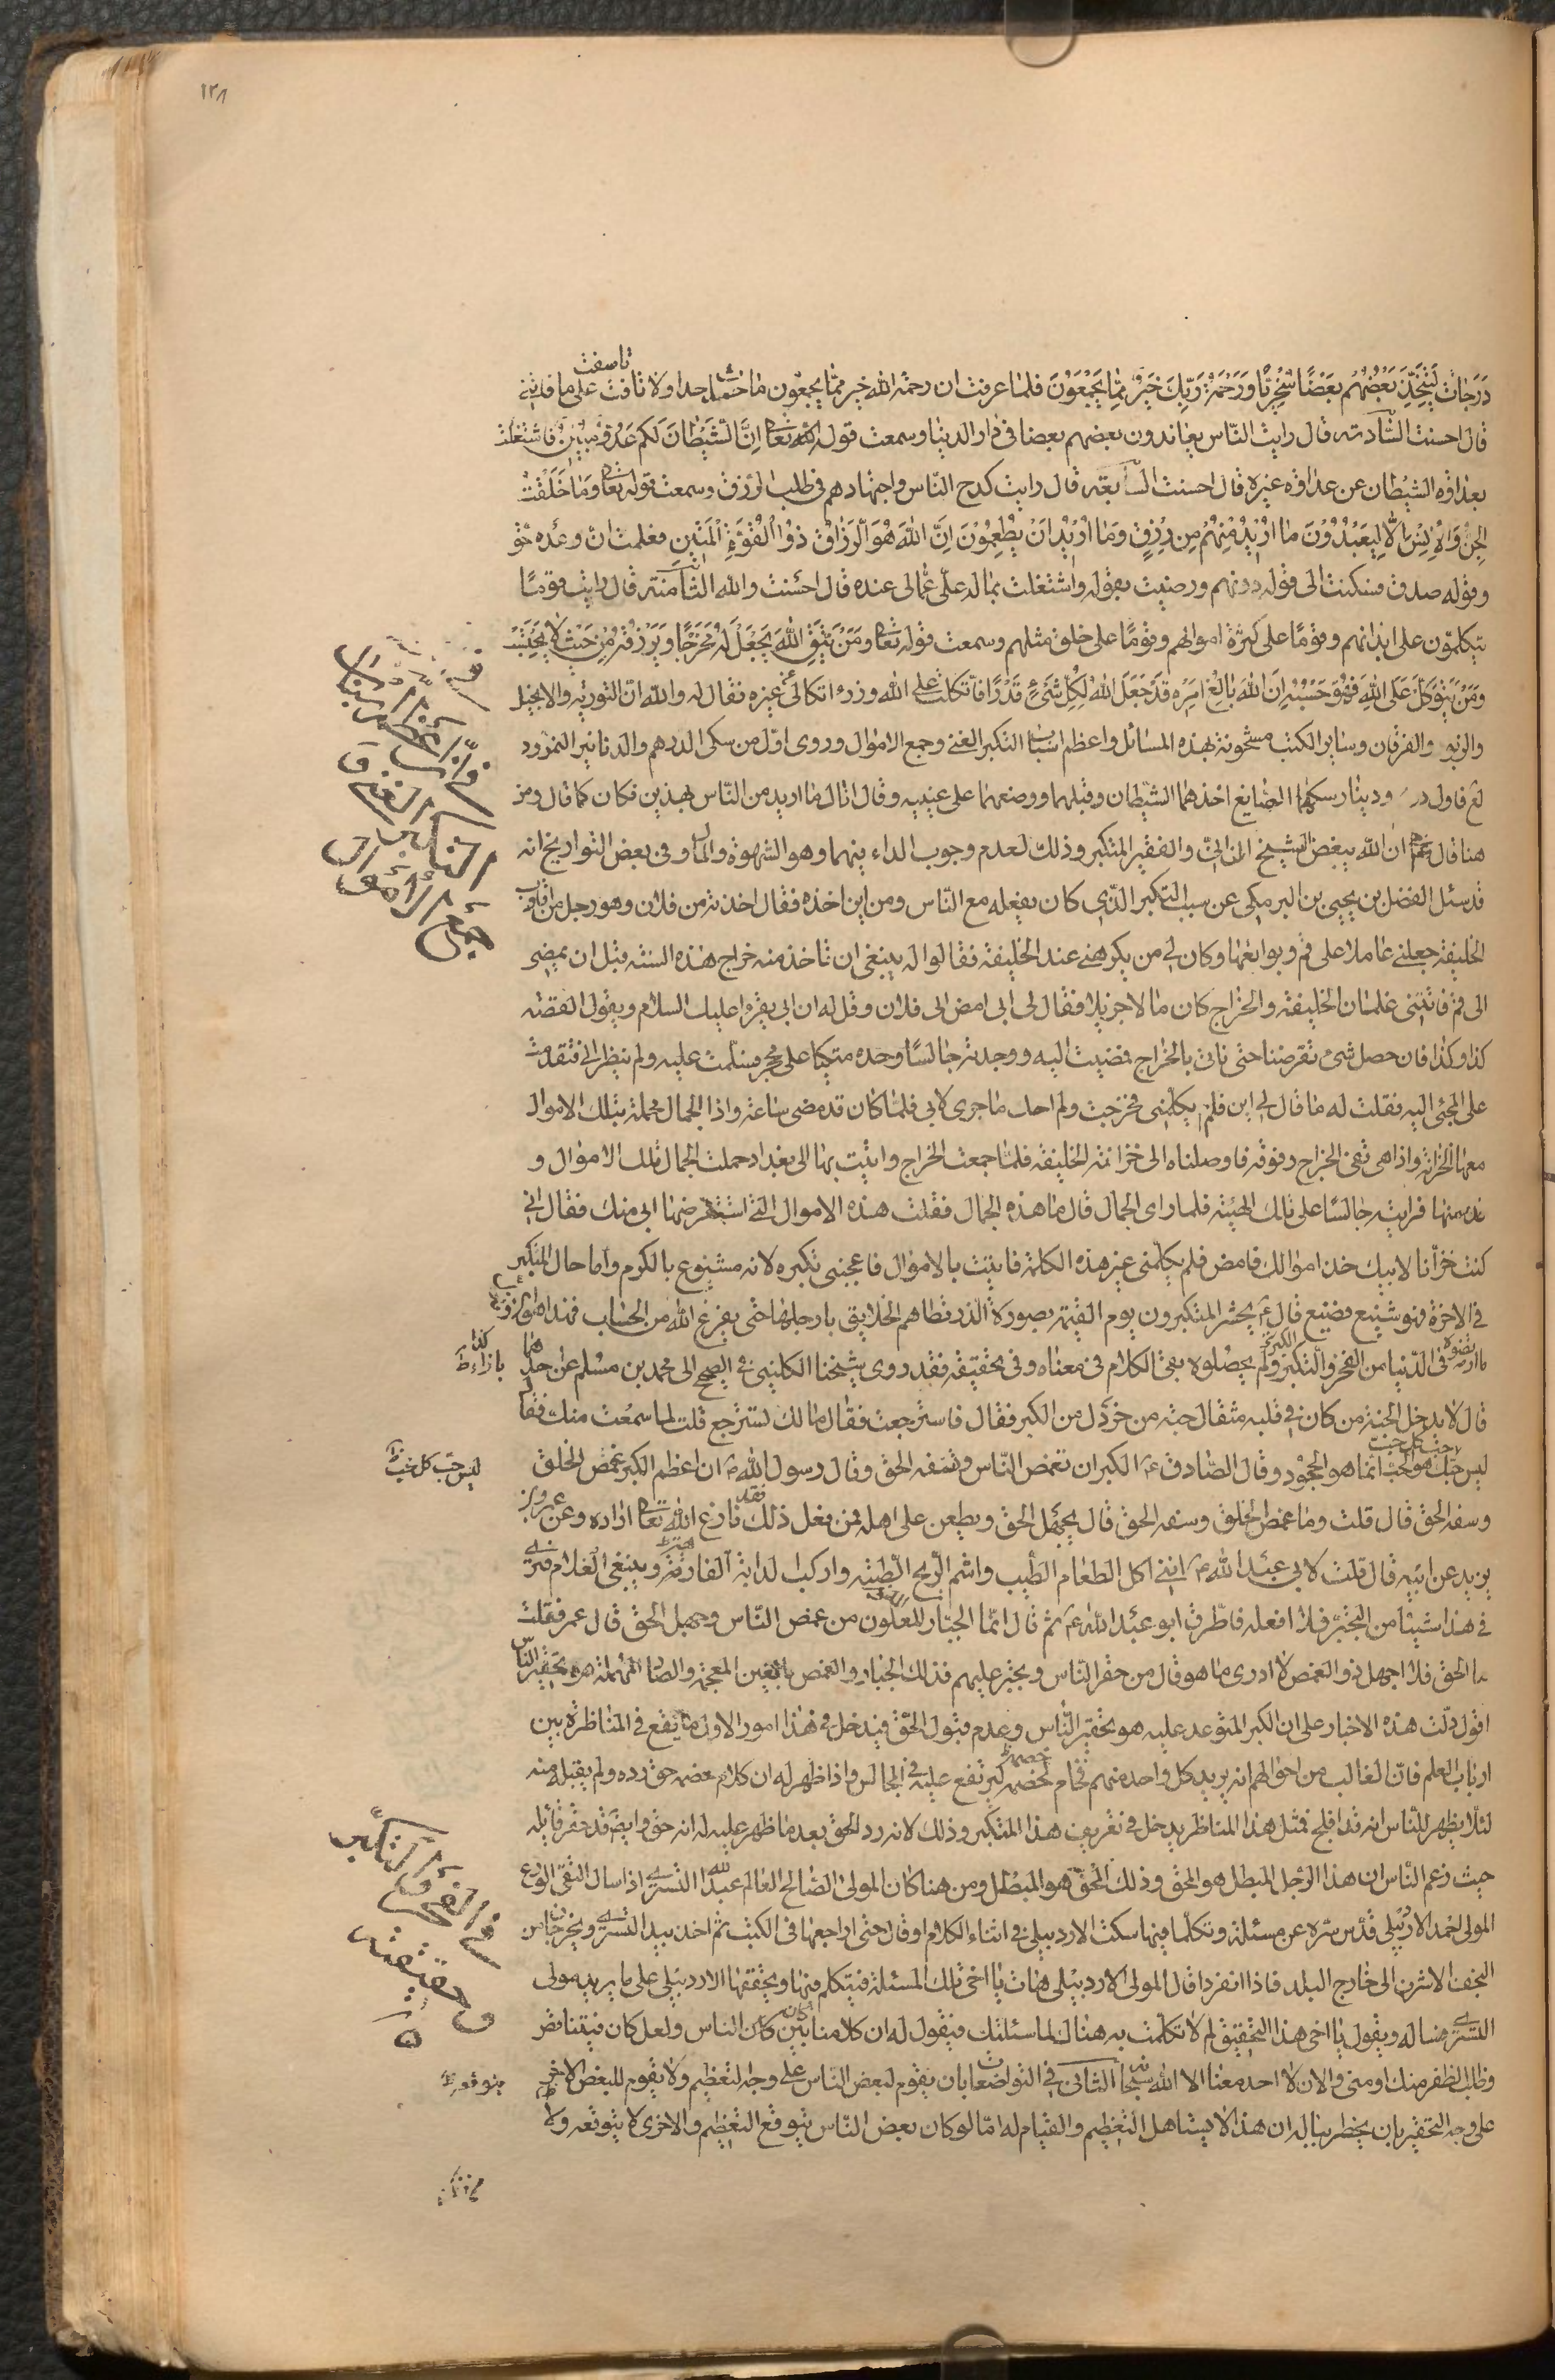 ١٣٨
دَرَجَاتٍ لِيَتَّخِذَ بَعْضُهُم بَعْضًا سُخْرِيًّا وَرَحْمَةُ رَبِّكَ خَيْرٌ مِّمَّا يَجْمَعُونَ فلما عرفت ان رحمة الله خير مما يجمعون ما حسدت احدا ولا تاسفت على ما فاتني
قال احسنت السادسة قال رايت الناس يعاندون بعضهم بعضا في دار الدنيا وسمعت قوله تعالى اِنَّ الشَّيْطَانَ لَكُم عَدُوٌّ مُبِينٌ فاشتغلت
بعداوة الشيطان عن عداوة غيره قال احسنت السابعة قال رايت كدح الناس واجتهادهم في طلب الرزق وسمعت قوله تعالى وَمَا خَلَقْتُ
الجِنَّ وَالْاِنْسَ اِلَّا لِيَعْبُدُوْنَ مَا اُرِيْدُ مِنْهُمْ مِن رِزْقٍ وَمَا اُرِيْدُ اَنْ يُطْعِمُوْنَ اِنَّ اللهَ هُوَ الرَّزَّاقُ ذُوْا الْقُوَّةِ الْمَتِيْنِ فعلمت ان وعده حق
وقوله صدق فسكنت الى قوله دونهم ورضيت بقوله واشتغلت بما له علي عما لي عنده قال احسنت والله الثامنة قال رايت قوما
يتكلون على ابدانهم وقوما على كثرة اموالهم وقوما على خلق مثلهم وسمعت قوله تعالى وَمَنْ يَتَّقِ اللهَ يَجْعَلْ لَهُ مَخْرَجًا وَيَرْزُقْهُ مِنْ حَيْثُ لَا يَحْتَسِبْ
وَمَنْ يَتَوَكَّلْ عَلَى اللهِ فَهُوَ حَسْبُهُ اِنَّ اللهَ بَالِغُ اَمْرِهِ قَدْ جَعَلَ اللهُ لِكُلِّ شَيْءٍ قَدْرًا فاتكلت على الله وزال اتكالي عن غيره فقال له والله ان التورية والانجيل
والزبور والفرقان وساير الكتب مشحونة بهذه المسائل واعظم اسباب التكبر الغنى وجمع الاموال وروى اول من سكى الدرهم والدنانير النمرود
لع فاول در ودينار سكهما الصايغ اخذهما الشيطان وقبلهما ووضعهما على عينيه وقال انا لا اريد من الناس بهذين فكان كما قال ومن
هنا قال ان الله يبغض الشيخ الزاني والفقير المتكبر وذلك لعدم وجوب الداء فيهما وهو الشهوة والمال وفي بعض التواريخ انه
قد سئل الفضل بن يحيى بن البرمكي عن سبب التكبر الذي كان يفعله مع الناس ومن اين اخذه فقال اخذته من فلان وهو رجل من اقارب
الخليفة جعلني عاملا على قم وتوابعها وكان لي من يكرهني عند الخليفة فقالوا له ينبغي ان تاخذ منه خراج هذه السنة قبل ان يمضي
الى قم فاتتني غلمان الخليفة والخراج كان مالا جزيلا فقال لي ابي امض الى فلان وقل له ان ابي يقرء عليك السلام ويقول القصة
كذا وكذا فان حصل شيء تقرضنا حتى ناتي بالخراج فمضيت اليه ووجدته جالسا وحده متكئا على مجر فسلمت عليه ولم ينظر الي فتقدمت
على المجئي اليه فقلت له ما قال لي ابي فلم يكلمني فخرجت ولم احك ما جرى لابي فلما كان قد مضى ساعة واذا الجمال محملة بتلك الاموال
معها الخزانة واذا هي تفي الخراج وفوقه فاوصلناه الى خزانة الخليفة فلما جمعت الخراج واتيت بها الى بغداد حملت الجمال تلك الاموال و
فرايته جالسا على تلك الهيئة فلما راى الجمال قال ما هذه الجمال فقلت هذه الاموال التي استقرضها ابي منك فقال اني
كنت خزانا لابيك خذ اموالك فامض فلم يكلمني غير هذه الكلمة فاتيت بالاموال فاعجبني تكبره لانه مشفوع بالكرم واما حال المتكبر
في الاخرة فهو شنيع فضيع قال ع يحشر المتكبرون يوم القيمة بصورة الذر تطاهم الخلايق بارجلها حتى يفرغ الله من الحساب فهذا
في الدنيا من الفخر والتكبر ولم يحصلوه بقي الكلام في معناه وفي تحقيقه فقد روى شيخنا الكليني في الصحيح الى محمد بن مسلم عن احدهما
قال لا يدخل الجنة من كان في قلبه مثقال حبة من خردل من الكبر فقال فاسترجعت فقال مالك تسترجع قلت لما سمعت منك فقال
ليس حيث تذهب انما هو الجحود وقال الصادق ع الكبر ان تغمص الناس وتسفه الحق وقال رسول الله ص ان اعظم الكبر غمص الخلق
وسفه الحق قال قلت وما غمص الخلق وسفه الحق قال يجهل الحق ويطعن على اهله فمن فعل ذلك فقد نازع الله تعالى ازاره وعن عمر بن
يزيد عن ابيه قال قلت لابي عبد الله ع انني اكل الطعام الطيب واشم الريح الطيبة واركب الدابة الفارهة ويتبعني الغلام فترى
في هذا شيئا من التجبر فلا افعله فاطرق ابو عبد الله ع ثم قال انما الجبار الملعون من غمص الناس وجهل الحق قال عمر فقلت
اما الحق فلا اجهله والغمص لا ادري ما هو قال من حقر الناس وتجبر عليهم فذلك الجبار والغمص بالغين المعجمة والصاد المهملة هو تحقير الناس
اقول دلت هذه الاخبار على ان الكبر المتوعد عليه هو تحقير الناس وعدم قبول الحق فيدخل في هذا امور الاول ما يقع في المناظرة بين
ارباب العلم فان الغالب من احوالهم انه يريد كل واحد منهم فحام خصمه ليرتفع عليه في المجالس واذا ظهر له ان كلام خصمه حق رده ولم يقبله منه
لئلا يظهر للناس انه قد افلح فمثل هذا المناظر يدخل في تعريف هذا المتكبر وذلك لانه رد الحق بعد ما ظهر عليه له انه حق وايضا قد حقر قائله
حيث زعم الناس ان هذا الرجل المبطل هو المحق وذلك المحق هو المبطل ومن هنا كان المولى الصالح العالم عبد الله التستري اذا سال التقي الورع
المولى احمد الاردبيلي قدس سره عن مسئلة وتكلما فيها سكت الاردبيلي في اثناء الكلام او قال حتى اراجعها في الكتب ثم اخذ بيد التستري ويخرجان من
النجف الاشرف الى خارج البلد فاذا انفردا قال المولى الاردبيلي هات يا اخي تلك المسئلة فيتكلم فيها ويحققها الاردبيلي على ما يريد مولى
التستري فساله ويقول يا اخي هذا التحقيق لم لا تكلمت به هناك لما سئلتك فيقول له ان كلامنا كان بين الناس ولعل كان فيه تنافس
وطلب الظفر منك او مني والان لا احد معنا الا الله سبحانه الثاني في التواضعات بان يقوم لبعض الناس على وجه التعظيم ولا يقوم للبعض الاخر
على وجه التحقير بان يخطر بباله ان هذا لا يستاهل التعظيم والقيام له اما لو كان بعض الناس يتوقع التعظيم والاخرى لا يتوقعه ولا
في ان اعظم اسباب
التكبر الغنى و
جمع الاموال
ليس حب كل خبث
في الفخر والتكبر
وحقيقته
يتوقعه